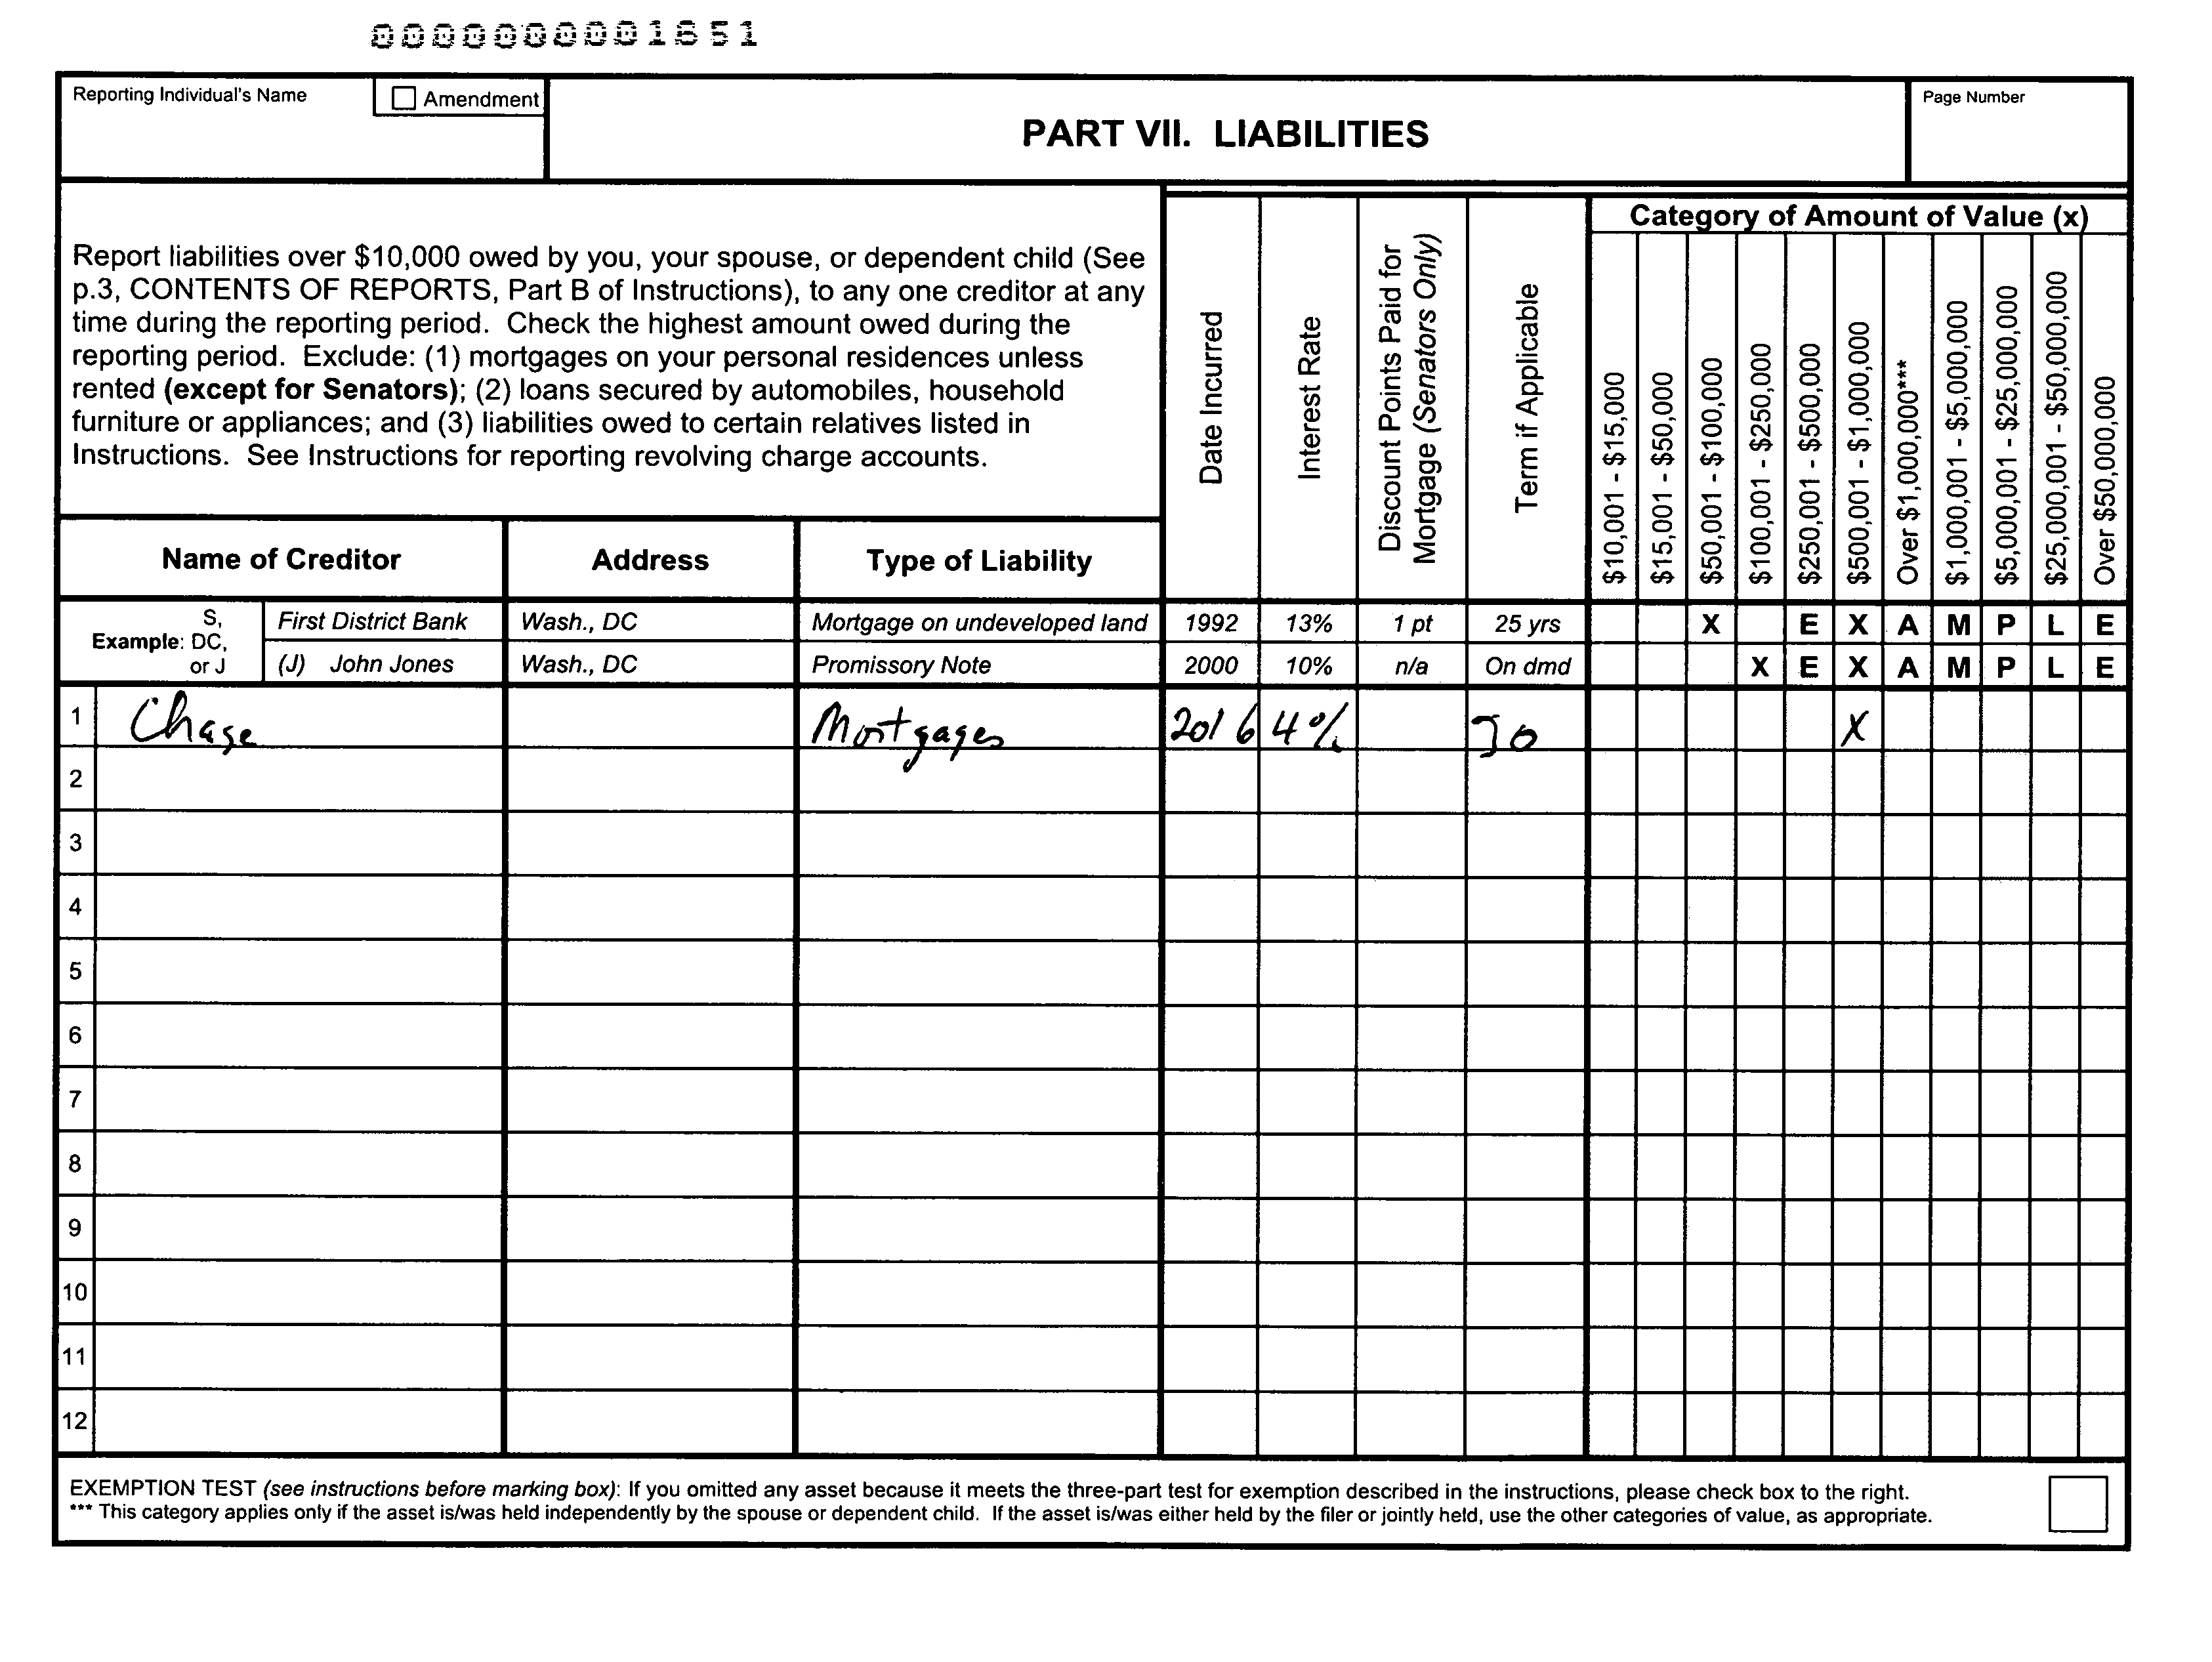 0000000001651
Reporting Individual's Name
Amendment
PART VII. LIABILITIES
Page Number
Report liabilities over $10,000 owed by you, your spouse, or dependent child (See
p.3, CONTENTS OF REPORTS, Part B of Instructions), to any one creditor at any
time during the reporting period. Check the highest amount owed during the
reporting period. Exclude: (1) mortgages on your personal residences unless
rented (except for Senators); (2) loans secured by automobiles, household
furniture or appliances; and (3) liabilities owed to certain relatives listed in
Instructions. See Instructions for reporting revolving charge accounts.
Date Incurred
Interest Rate
Discount Points Paid for
Mortgage (Senators Only)
Term if Applicable
Category of Amount of Value (x)
$10,001 - $15,000
$15,001 - $50,000
$50,001 - $100,000
$100,001 - $250,000
$250,001 - $500,000
$500,001 - $1,000,000
Over $1,000,000***
$1,000,001 - $5,000,000
$5,000,001 - $25,000,000
$25,000,001 - $50,000,000
Over $50,000,000
Name of Creditor Address Type of Liability
Example: S,
DC,
or J
First District Bank Wash., DC Mortgage on undeveloped land 1992 13% 1 pt 25 yrs X E X A M P L E
(J) John Jones Wash., DC Promissory Note 2000 10% n/a On dmd X E X A M P L E
1 Chase Mortgages 2016 4% 30 X
2
3
4
5
6
7
8
9
10
11
12
EXEMPTION TEST (see instructions before marking box): If you omitted any asset because it meets the three-part test for exemption described in the instructions, please check box to the right.
*** This category applies only if the asset is/was held independently by the spouse or dependent child. If the asset is/was either held by the filer or jointly held, use the other categories of value, as appropriate.